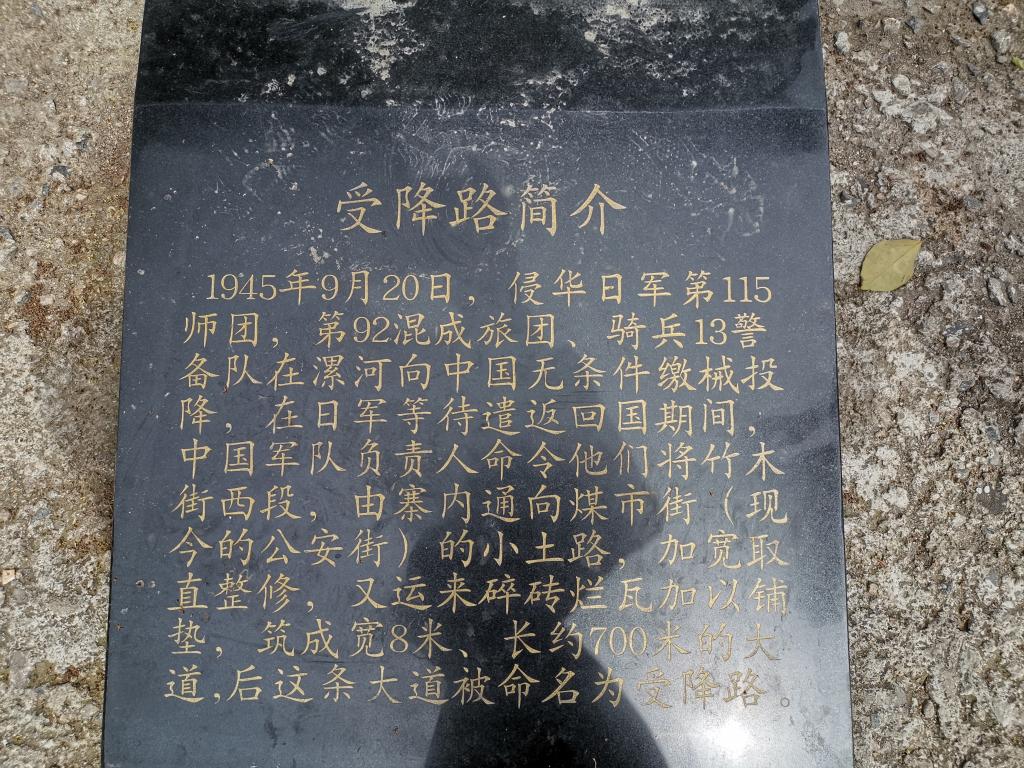 受降路简介
1945年9月20日，侵华日军第115
师团，第92混成旅团、骑兵13警
备队在漯河向中国无条件缴械投
降，在日军等待遣返回国期间，
中国军队负责人命令他们将竹木
街西段，由寨内通向煤市街（现
今的公安街）的小土路，加宽取
直整修，又运来碎砖烂瓦加以铺
垫，筑成宽8米、长约700米的大
道,后这条大道被命名为受降路。